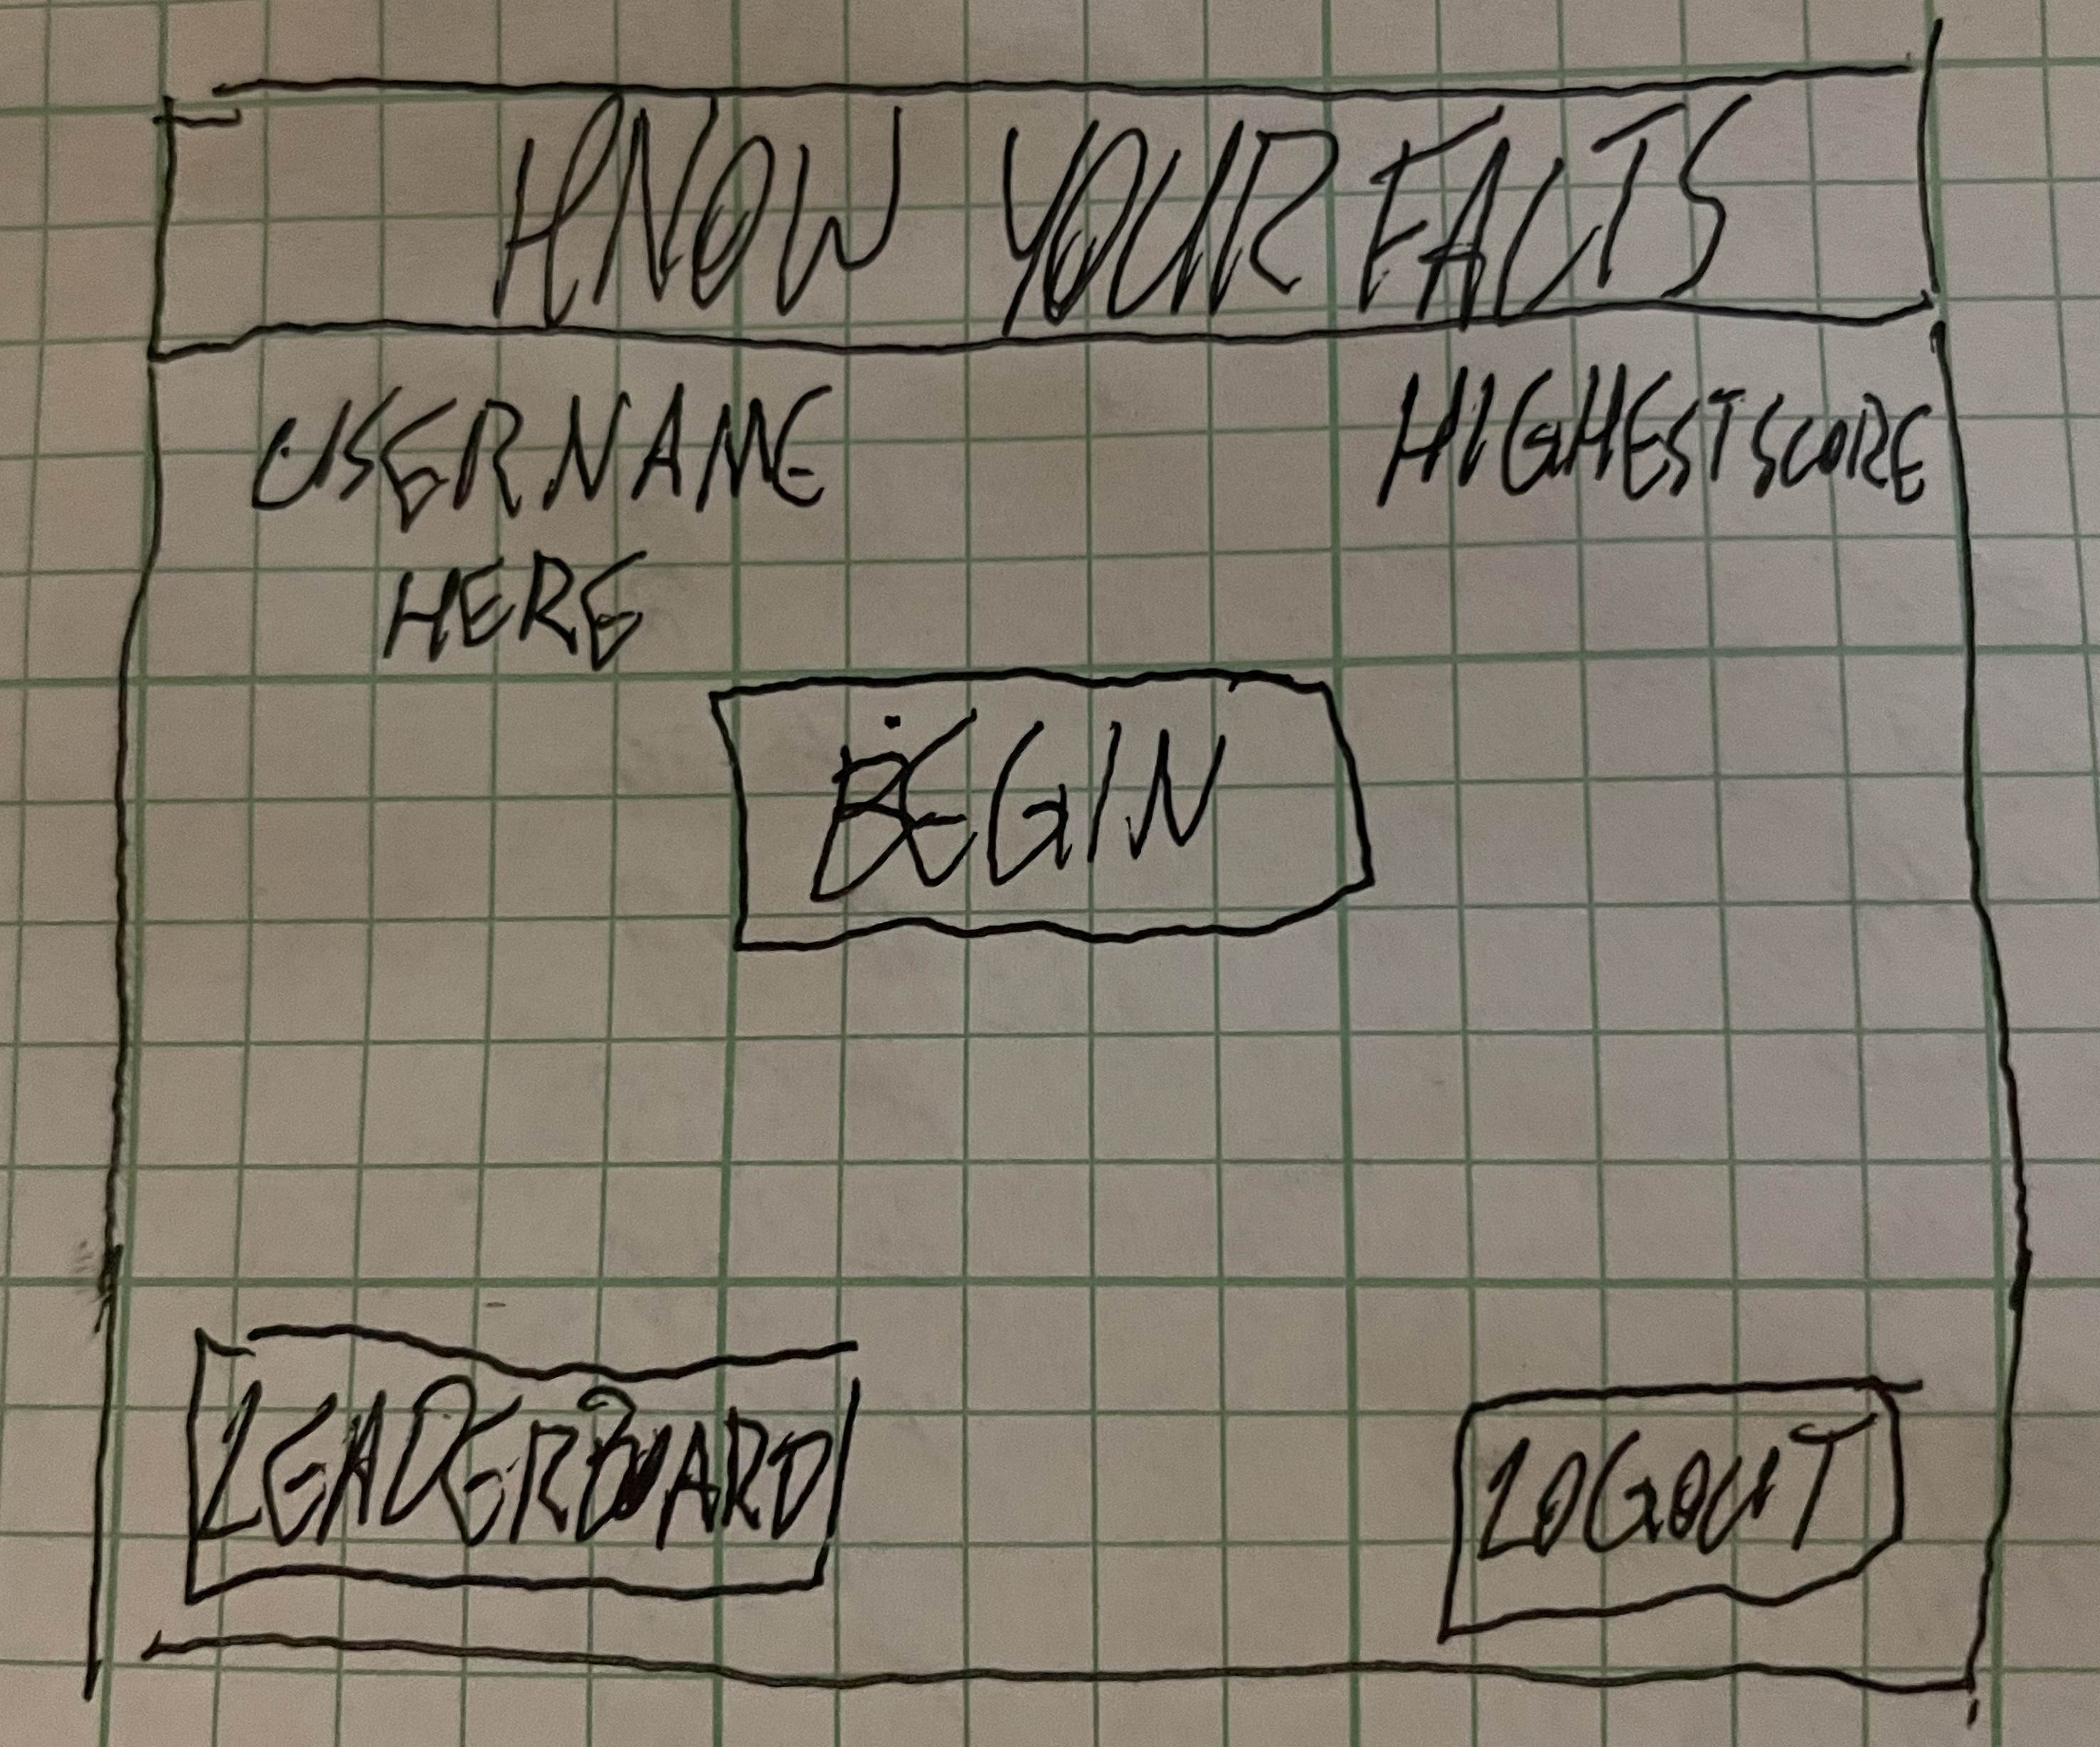 KNOW YOUR FACTS
USERNAME HIGHEST SCORE
HERE
BEGIN
LEADERBOARD LOGOUT